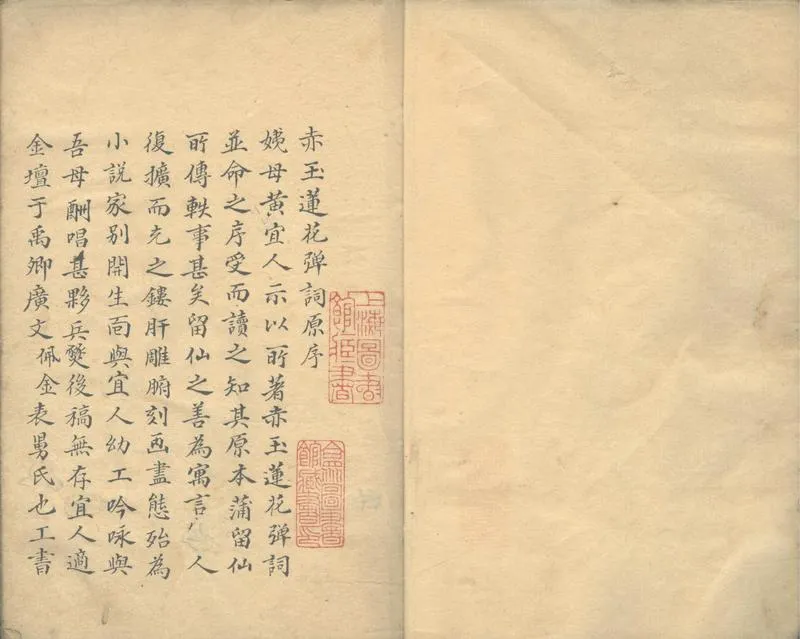 赤玉蓮花彈詞原序
姨母黄宜人示以所著赤玉蓮花彈詞
並命之序受而讀之知其原本蒲留仙
所傳軼事甚矣留仙之善為寓言宜人
復擴而充之鏤肝雕腑刻画盡態殆為
小說家別開生面與宜人幼工吟咏與
吾母酬唱甚夥兵燹後稿無存宜人適
金壇于禹卿廣文佩金表舅氏也工書
上海圖書
館藏書